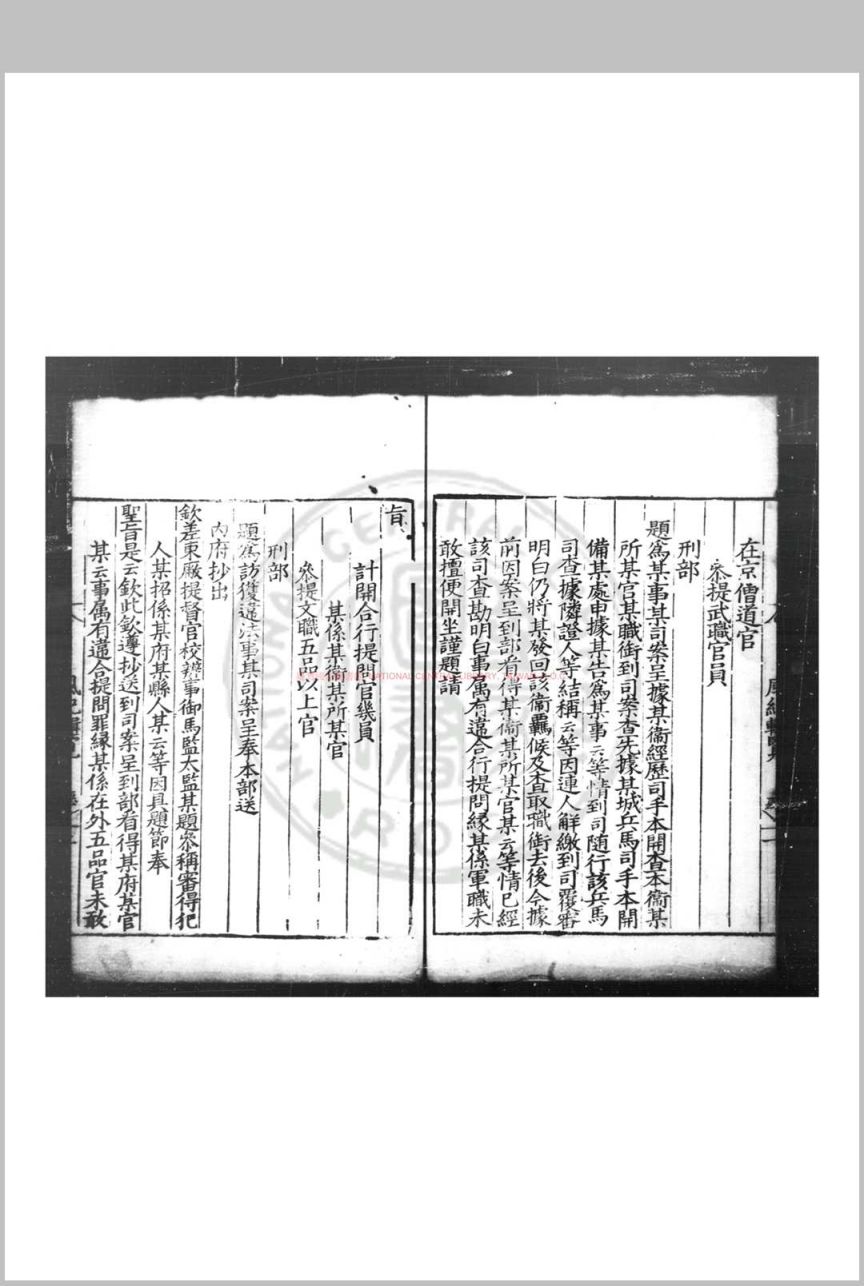 在京僧道官
叅提武職官員
刑部
題爲某事某司案呈據某衞經歷司手本開查本衞某
所某官某職銜到司案查先據某城兵馬司手本開
備某處申據某告爲某事云等情到司隨行該兵馬
司查據隣證人等結稱云等因連人解繳到司覆審
明白仍將某發回該衞羈候及查取職銜去後今據
前因案呈到部看得某衞某所某官某云等情已經
該司查勘明白事屬有違合行提問緣某係軍職未
敢擅便開坐謹題請
旨
計開合行提問官幾員
某係某衞某所某官
叅提文職五品以上官
刑部
題爲訪獲違法事某司案呈奉本部送
內府抄出
欽差東厰提督官校辦事御馬監太監某題叅稱審得犯
人某招係某府某縣人某云等因具題節奉
聖旨是云欽此欽遵抄送到司案呈到部看得某府某官
某云事屬有違合提問罪緣某係在外五品官未敢
NATIONAL CENTRAL LIBRARY